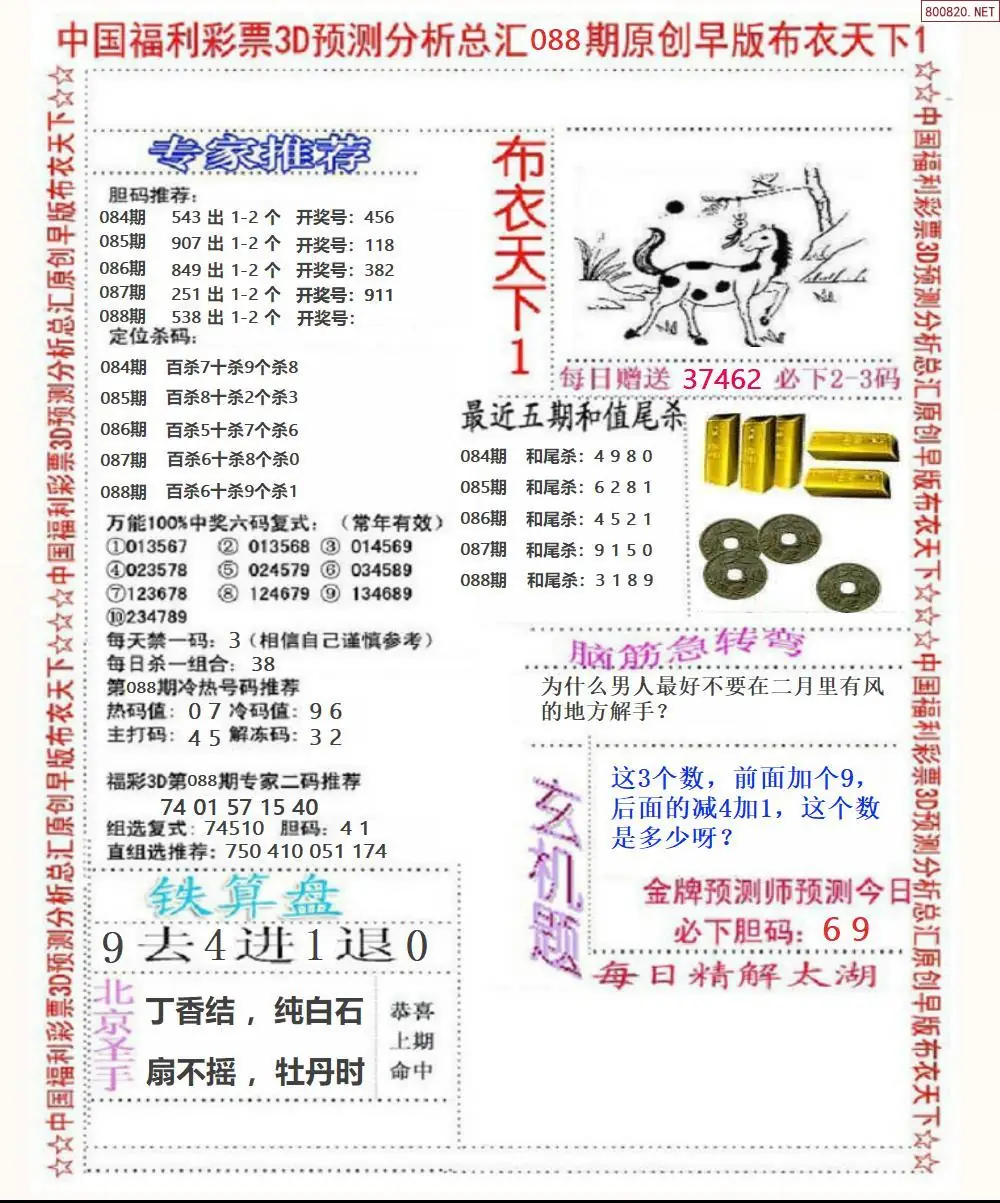 800820.NET
中国福利彩票3D预测分析总汇088期原创早版布衣天下1
☆☆中国福利彩票3D预测分析总汇原创早版布衣天下☆☆中国福利彩票3D预测分析总汇原创早版布衣天下☆☆
专家推荐
胆码推荐:
084期 543 出 1-2 个 开奖号: 456
085期 907 出 1-2 个 开奖号: 118
086期 849 出 1-2 个 开奖号: 382
087期 251 出 1-2 个 开奖号: 911
088期 538 出 1-2 个 开奖号:
定位杀码:
084期 百杀7十杀9个杀8
085期 百杀8十杀2个杀3
086期 百杀5十杀7个杀6
087期 百杀6十杀8个杀0
088期 百杀6十杀9个杀1
万能100%中奖六码复式: (常年有效)
①013567 ② 013568 ③ 014569
④023578 ⑤ 024579 ⑥ 034589
⑦123678 ⑧ 124679 ⑨ 134689
⑩234789
每天禁一码: 3 (相信自己谨慎参考)
每日杀一组合: 38
第088期冷热号码推荐
热码值: 0 7 冷码值: 9 6
主打码: 4 5 解冻码: 3 2
福彩3D第088期专家二码推荐
74 01 57 15 40
组选复式: 74510 胆码: 4 1
直组选推荐: 750 410 051 174
铁算盘
9去4进1退0
北京圣手
丁香结, 纯白石
扇不摇, 牡丹时
恭喜
上期
命中
布衣天下1
每日赠送 37462 必下2-3码
最近五期和值尾杀
084期 和尾杀: 4 9 8 0
085期 和尾杀: 6 2 8 1
086期 和尾杀: 4 5 2 1
087期 和尾杀: 9 1 5 0
088期 和尾杀: 3 1 8 9
脑筋急转弯
为什么男人最好不要在二月里有风
的地方解手?
玄机题
这3个数, 前面加个9,
后面的减4加1, 这个数
是多少呀?
金牌预测师预测今日
必下胆码: 6 9
每日精解太湖
☆☆中国福利彩票3D预测分析总汇原创早版布衣天下☆☆中国福利彩票3D预测分析总汇原创早版布衣天下☆☆